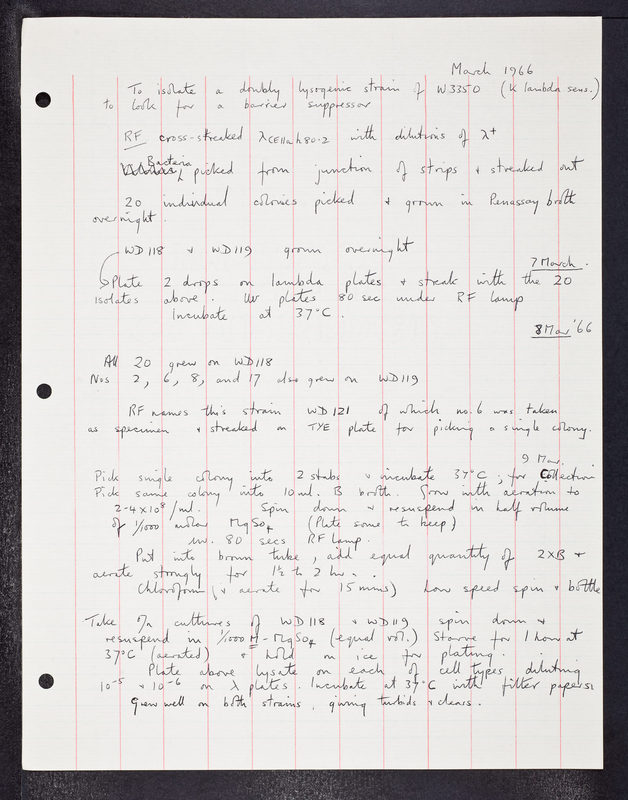 March 1966
To isolate a doubly lysogenic strain of W3350 (K lambda sens.)
to look for a barrier suppressor
RF cross-streaked λCEIIa h80.2 with dilutions of λ+
Bacteria picked from junction of strips & streaked out
20 individual colonies picked & grown in Penassay broth
overnight.
WD118 & WD119 grown overnight
7 March.
Plate 2 drops on lambda plates & streak with the 20
isolates above. UV plates 80 sec under RF lamp
Incubate at 37°C.
8 Mar '66
All 20 grew on WD118
Nos 2, 6, 8, and 17 also grew on WD119
RF names this strain WD121 of which no. 6 was taken
as specimen & streaked on TYE plate for picking a single colony.
9 Mar.
Pick single colony into 2 stabs & incubate 37°C; for Collection
Pick same colony into 10 ml. B broth. Grow with aeration to
2-4x10⁸/ml. Spin down & resuspend in half volume
of 1/1000 molar MgSO4 (Plate some to keep)
uv. 80 secs RF lamp.
Put into brown tube, add equal quantity of 2XB &
aerate strongly for 1½ to 2 hr.
Chloroform (& aerate for 15 mins) Low speed spin & bottle
Take o/n cultures of WD118 & WD119 spin down &
resuspend in 1/1000 M - MgSO4 (equal vol.) Starve for 1 hour at
37°C (aerated) & hold on ice for plating.
Plate above lysate on each of cell types diluting
10-5 & 10-6 on λ plates. Incubate at 37°C with filter papers.
Grew well on both strains, giving turbids & clears.